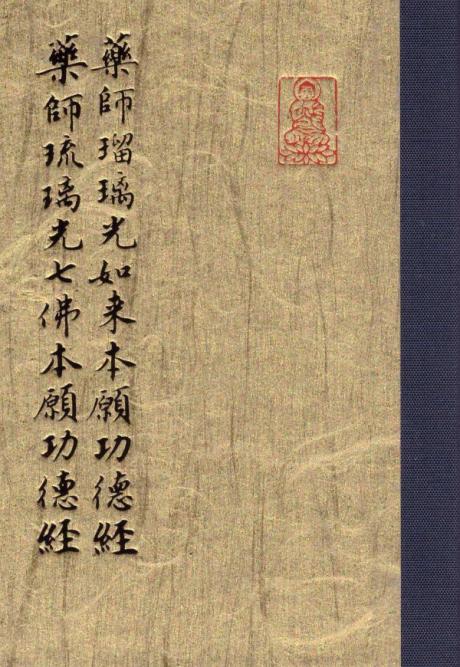 藥師瑠璃光如来本願功德經
藥師琉璃光七佛本願功德經